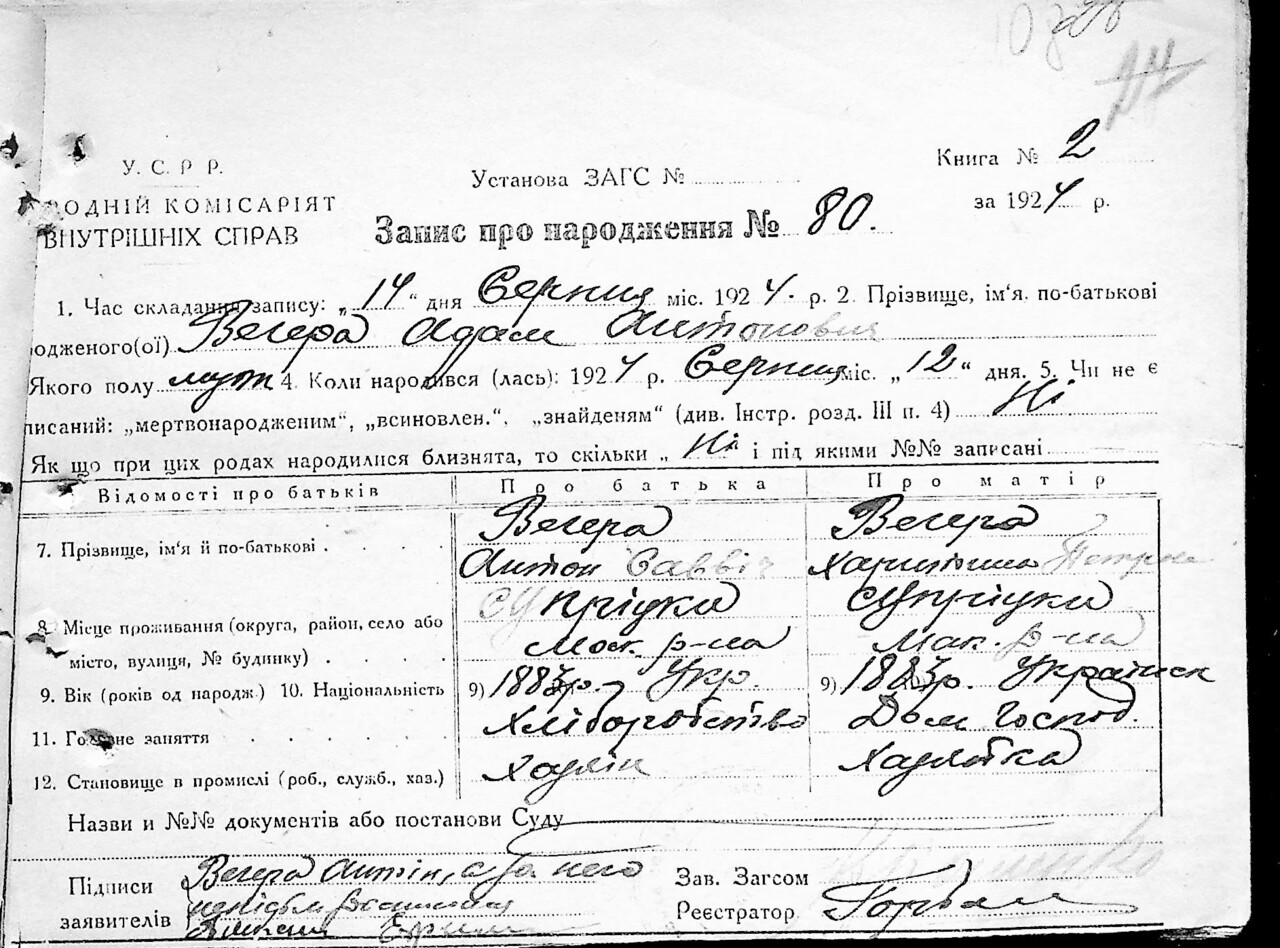 У. С. Р Р.
ОДНІЙ КОМІСАРІЯТ
ВНУТРІШНІХ СПРАВ
Установа ЗАГС №
Книга № 2
за 1924 р.
Запис про народження № 80.
1. Час складання запису: „14“ дня Серпня міс. 1924. р. 2. Прізвище, ім'я, по-батькові
одженого(ої) Вечера Адам Антонович
Якого полу муж 4. Коли народився (лась): 1924 р. Серпня міс. „12“ дня. 5. Чи не є
писаний: „мертвонародженим“, „всиновлен.“, „знайденям“ (див. Інстр. розд. III п. 4) Ні
Як що при цих родах народилися близнята, то скільки „ Ні і під якими №№ записані
Відомості про батьків Про батька Про матір
7. Прізвище, ім'я й по-батькові Вечера Вечера
Антон Саввіч Харитина
8. Місце проживання (округа, район, село або
місто, вулиця, № будинку) р-на Мак. р-на
9. Вік (років од народж.) 10. Національність 9) 1883р. Укр. 9) 1883р. Українск
11. Головне заняття Хліборобство Дом. Господ.
12. Становище в промислі (роб., служб., хаз.) Хазяін Хазяйка
Назви и №№ документів або постанови Суду
Підписи Вечера Антін, а за него
заявителів
Зав. Загсом
Реєстратор Горбач